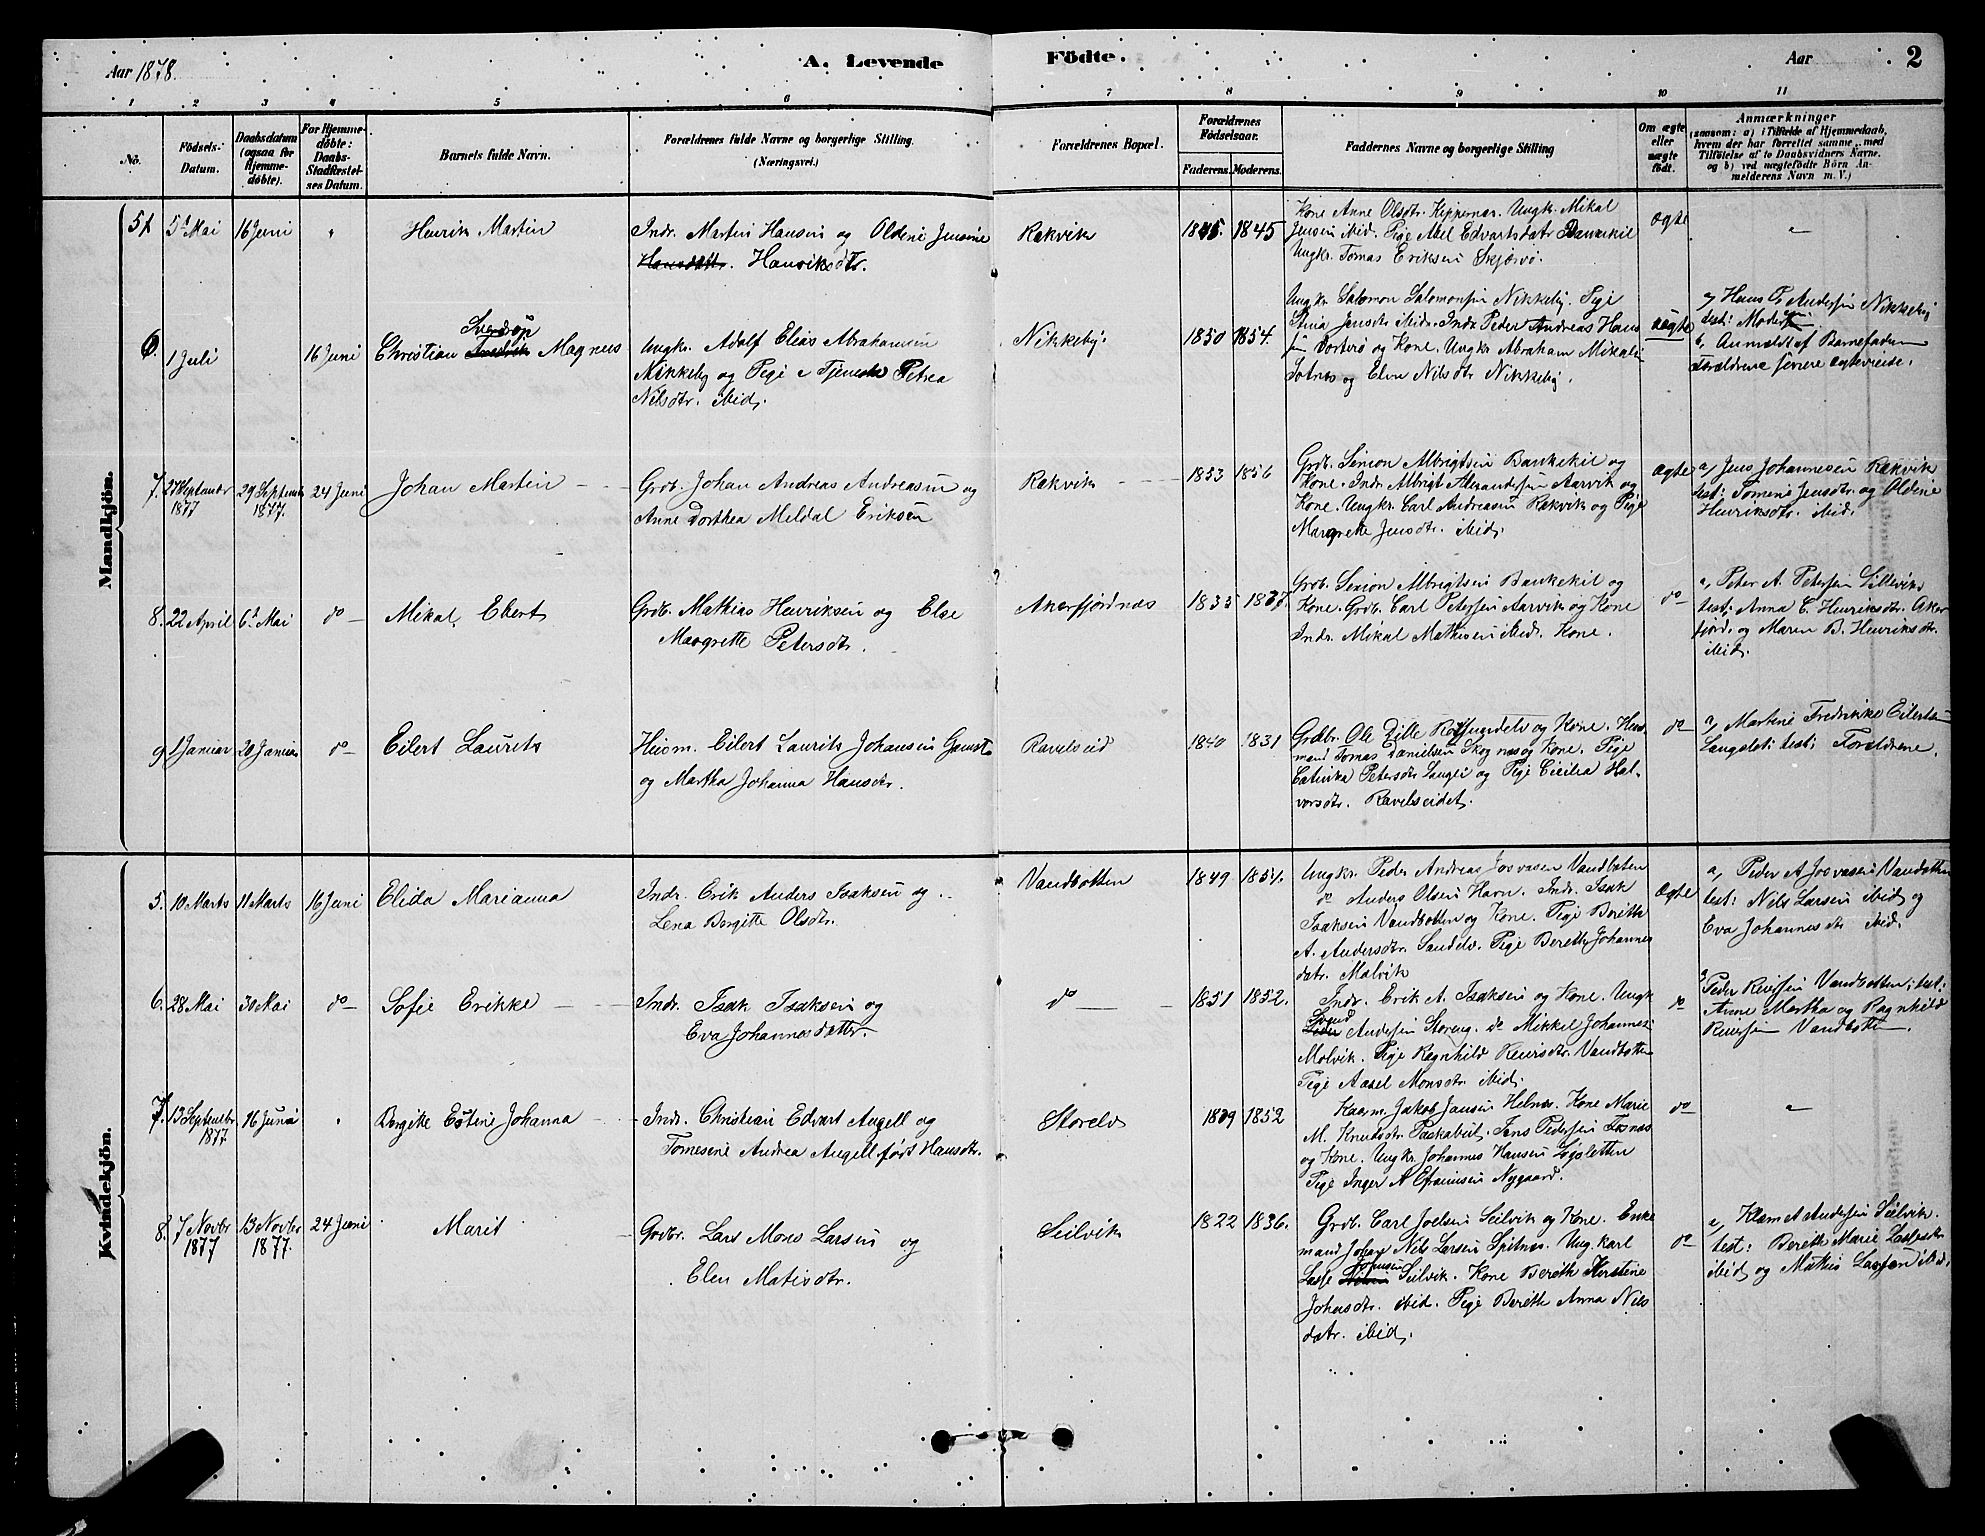 Aar 1878. A. Levende Födte. Aar 2
1 2 3 4 5 6 7 8 9 10 11
No. Födsels-Datum. Daabsdatum (ogsaa for Hjemmedöbte). For Hjemmedöbte: Daabs-Stadfæstelses Datum. Barnets fulde Navn. Forældrenes fulde Navne og borgerlige Stilling. (Næringsvei.) Forældrenes Bopæl. Forældrenes Födselsaar. Faderens. Moderens. Faddernes Navne og borgerlige Stilling Om ægte eller uægte födt. Anmærkninger (saasom: a) i Tilfælde af Hjemmedaab, hvem der har forrettet samme, med Tilföielse af to Daabsvidners Navne, og b) ved uægtefödte Börn Anmelderens Navn m. V.)
Mandkjön.
5 Mai 16 Juni " Henrik Martin
Indr. Martin Hansen og Oldene Jensine
Hansdatr. Henriksdtr.
Rakvik 1845. 1845
Kone Anne Olsdtr. Keppernæs. Ungkr. Mikal
Jensen ibid. Pige Abel Edvartsdatr Bankekil
Ungkr. Tomas Eriksen Skjærvö.
Ægte "
6. 1 Juli 16 Juni Christian Fredrik Sverdrop Magnus
Ungkr. Adolf Elias Abrahamsen
Nikkeby og Pige e Tjeneste Petrea
Nilsdtr. ibid.
Nikkeby. 1850 1854.
Ungkr Salomon Salomonsen Nikkeby. Pige
Stina Jensdtr ibid. Indr Peder Andreas Han
sen Vorterö og Kone. Ungkr Abraham Mikals
Totnes og Elen Nilsdtr Nikkeby.
uægte
a, Hans P. Andersen Nikkeby
test: Moder
b, Anmeldt af Barnefaderen
Forældrene senere ægteviede.
7. 27 September 1877 29 Septemb 1877. 24 Juni Johan Martin
Grdb. Johan Andreas Andreasen og
Anne Dorthea Meldal Eriksen
Rakvik 1853 1856
Grdb. Simon Albrigtsen Bankekil og
Kone. Indr. Albrigt Alexandersen Aarvik og
Kone. Ungkr. Carl Andreasen Rakvik og Pige
Margrethe Jensdtr. ibid.
Ægte
a, Jens Johannesen Rakvik
test: Tomene Jensdtr. og Oldine
Henriksdtr. ibid.
8. 22 April 6 Mai do Mikal Ebert
Grdb. Mathias Henriksen og Else
Margrette Petersdtr.
Akerfjordnæs 1835 1837.
Grdb. Simon Albrigtsen Bankekil og
Kone. Grdb. Carl Petersen Aarvik og Kone
Indr. Mikal Mathisen ibid. Kone.
do
a, Peter A. Petersen Lillevik
test, Anna E. Henriksdtr. Aker
fjord. og Maren B. Henriksdtr.
ibid.
9. 1 Januar 20 Januar do Eilert Laurits
Huusm. Eilert Laurits Johansen Gamst
og Martha Johanna Hansdtr.
Ravelseid 1840 1831
Grdbr. Ole Zille Rotsundelv og Kone. Huus
mand Tomas Danielsen Skognæs og Kone. Pige
Catinka Petersdtr Langli og Pige Cicilia Hal-
vorsdtr. Ravelseidet.
do
a, Martine Fredrikke Eilertsen
Langslet: test: Forældrene.
Kvindekjön.
5. 10 Marts 11 Marts 16 Juni Elida Marianna
Indr. Erik Anders Isaksen og
Lena Bergitte Olsdtr.
Vandbotten 1849 1851.
Ungkr. Peder Andreas Josvasen Vandboten
do Anders Olsen Havn. Indr. Isak
Isaksen Vandbotten og Kone. Pige Bereth
A. Andersdtr. Sandelv. Pige Bereth Johannes
datr. Malvik
Ægte
a, Peder A Josvasen Vandbotten
test: Nils Larsen ibid og
Eva Johannesdtr ibid.
6. 28 Mai 30 Mai do Sofie Erikke
Indr. Isak Isaksen og
Eva Johannesdatter.
do 1851 1852.
Indr. Erik A. Isaksen og Kone. Ungk
Svend Andersen Storeng. do Mikkel Johannes
Molvik. Pige Ragnhild Reiersdtr. Vandbotten
Pige Aasel Monsdtr. ibid.
do
a, Peder Reiersen Vandbotten; test:
Anne Martha og Ragnhild
Reiersen Vandbotten.
7. 13 Septembr 1877 16 Juni " Bergitte Estine Johanna
Indr. Christian Edvart Angell og
Tomesine Andrea Angell født Hansdtr.
Storelv 1849 1852
Kaarm. Jakob Jansen Helnes. Kone Marie
M. Knudsdtr. Paskabut. Jens Pedersen Fæsnæs
og Kone. Ungkr. Johannes Hansen Sögsletten
Pige Inger A Efraimsen Nygaard.
do "
8. 7 Novbr 1877 13 Novbr 1877. 24 Juni Marit
Grdbr. Lars Mons Larsen og
Elen Matisdtr.
Seilvik 1822 1836.
Grdb. Carl Joelsen Seilvik og Kone. Enke
mand Johan Nils Larsen Spilnæs. Ung.karl
Lasse Seilvik. Kone Bereth Kirstine
Johansdtr. ibid. Pige Bereth Anna Nils
datr. ibid.
do
a, Klam A Andersen Seilvik.
test: Bereth Marie
ibid og Mathis Larsen ibid.